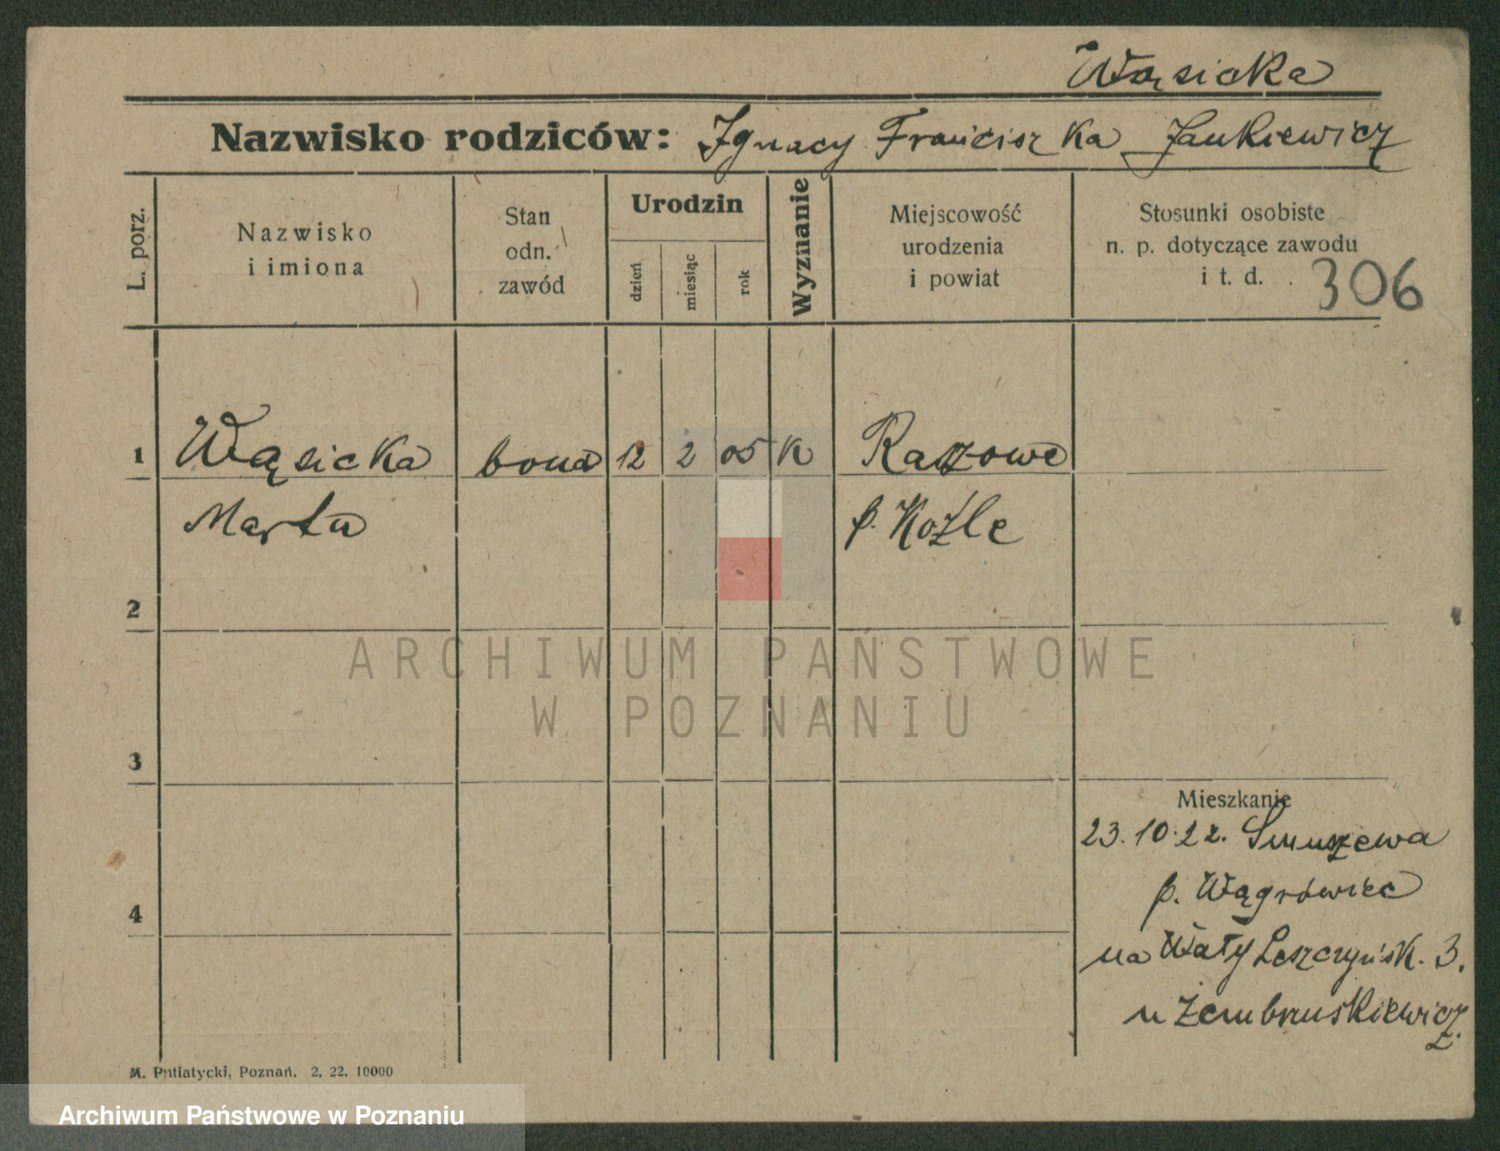 Wąsicka
Nazwisko rodziców: Ignacy Franciszka Jankiewicz
L. porz.
Nazwisko
i imiona
Stan
odn.
zawód
Urodzin
dzień
miesiąc
rok
Wyznanie
Miejscowość
urodzenia
i powiat
Stosunki osobiste
n. p. dotyczące zawodu
i t. d.
306
1 Wąsicka bona 12 2 05 K Raszowa
Marta p. Koźle
2
ARCHIWUM PAŃSTWOWE
W POZNANIU
3
Mieszkanie
23.10.22. Smuszewa
p. Wągrówiec
4
na Wały Leszczyńsk. 3.
u Zembruskiewicz.
M. Putiatycki, Poznań. 2. 22. 10000
Archiwum Państwowe w Poznaniu